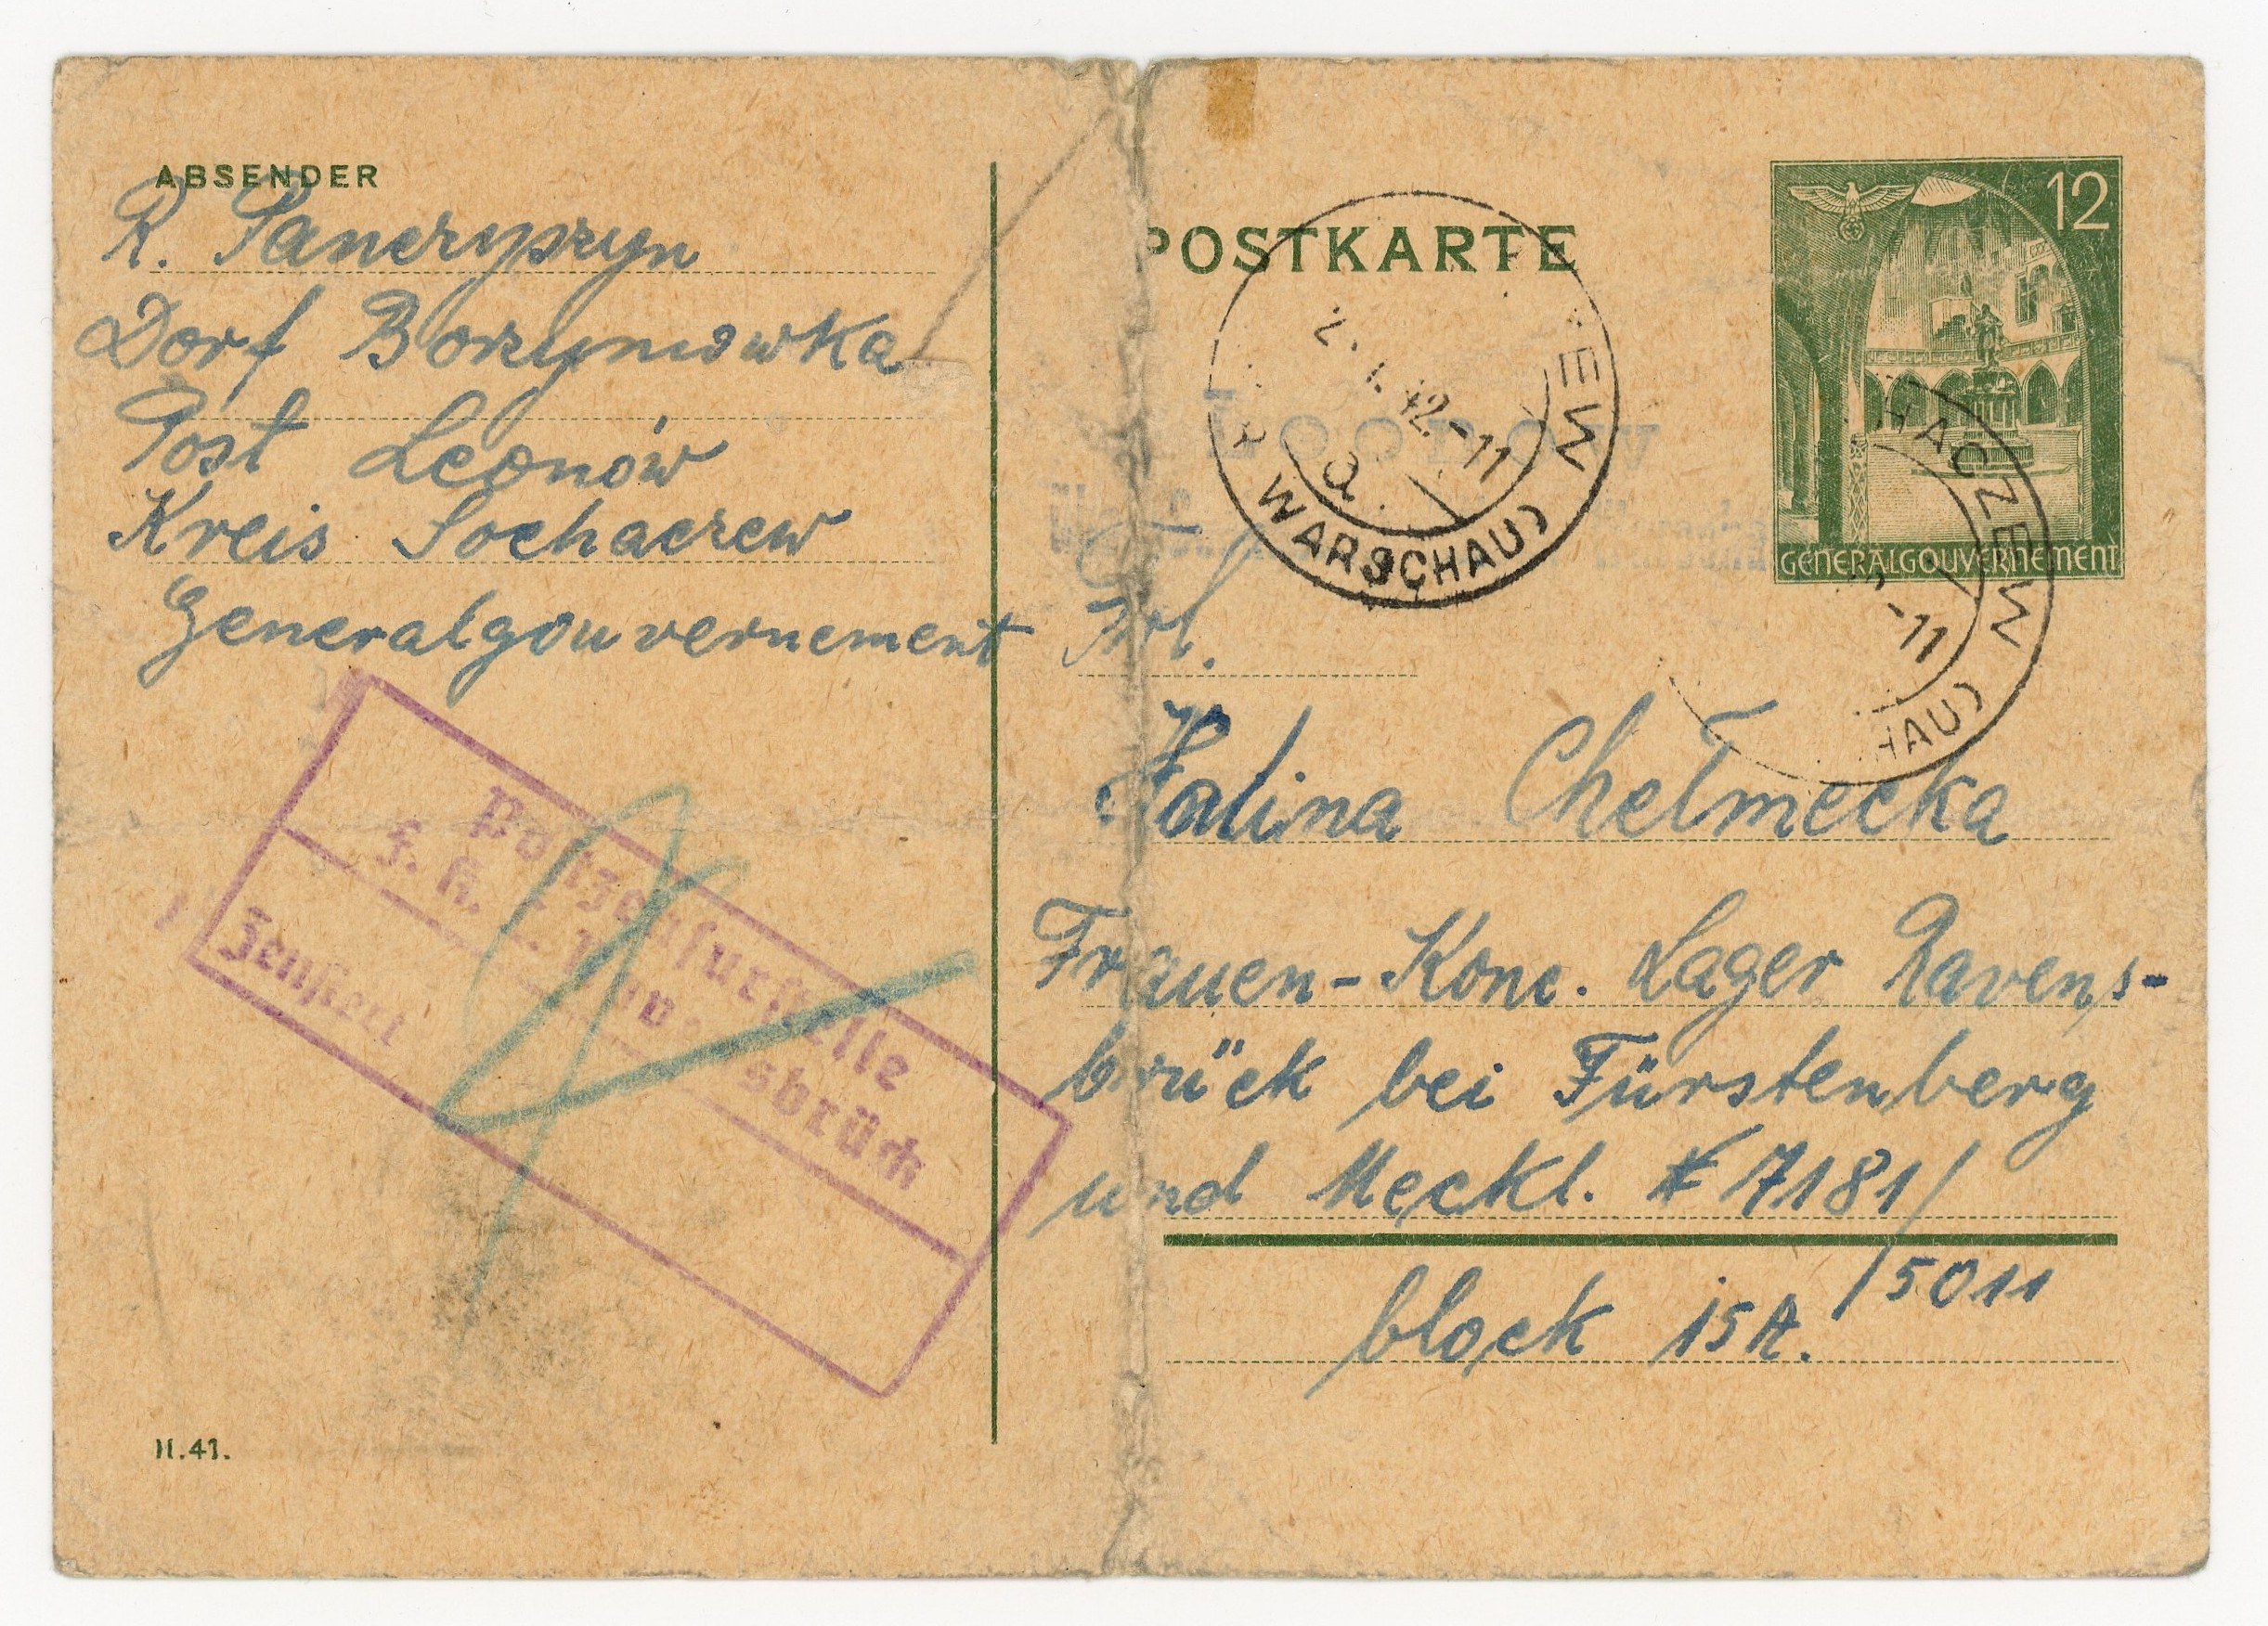 ABSENDER
R. Panczyszyn
Dorf Borzymowka
Post Leonów
Kreis Sochaczew
Generalgouvernement
Postzensurstelle
F. K. L. Ravensbrück
Zensiert
II.41.
POSTKARTE
12
GENERALGOUVERNEMENT
EW
2.1.42.-11
a
WARSCHAU)
HACZEW
-11
HAU)
Frl.
Halina Chełmecka
Frauen-Konc. Lager Ravens-
brück bei Fürstenberg
und Meckl. # 7181/
/5011
block 15A.